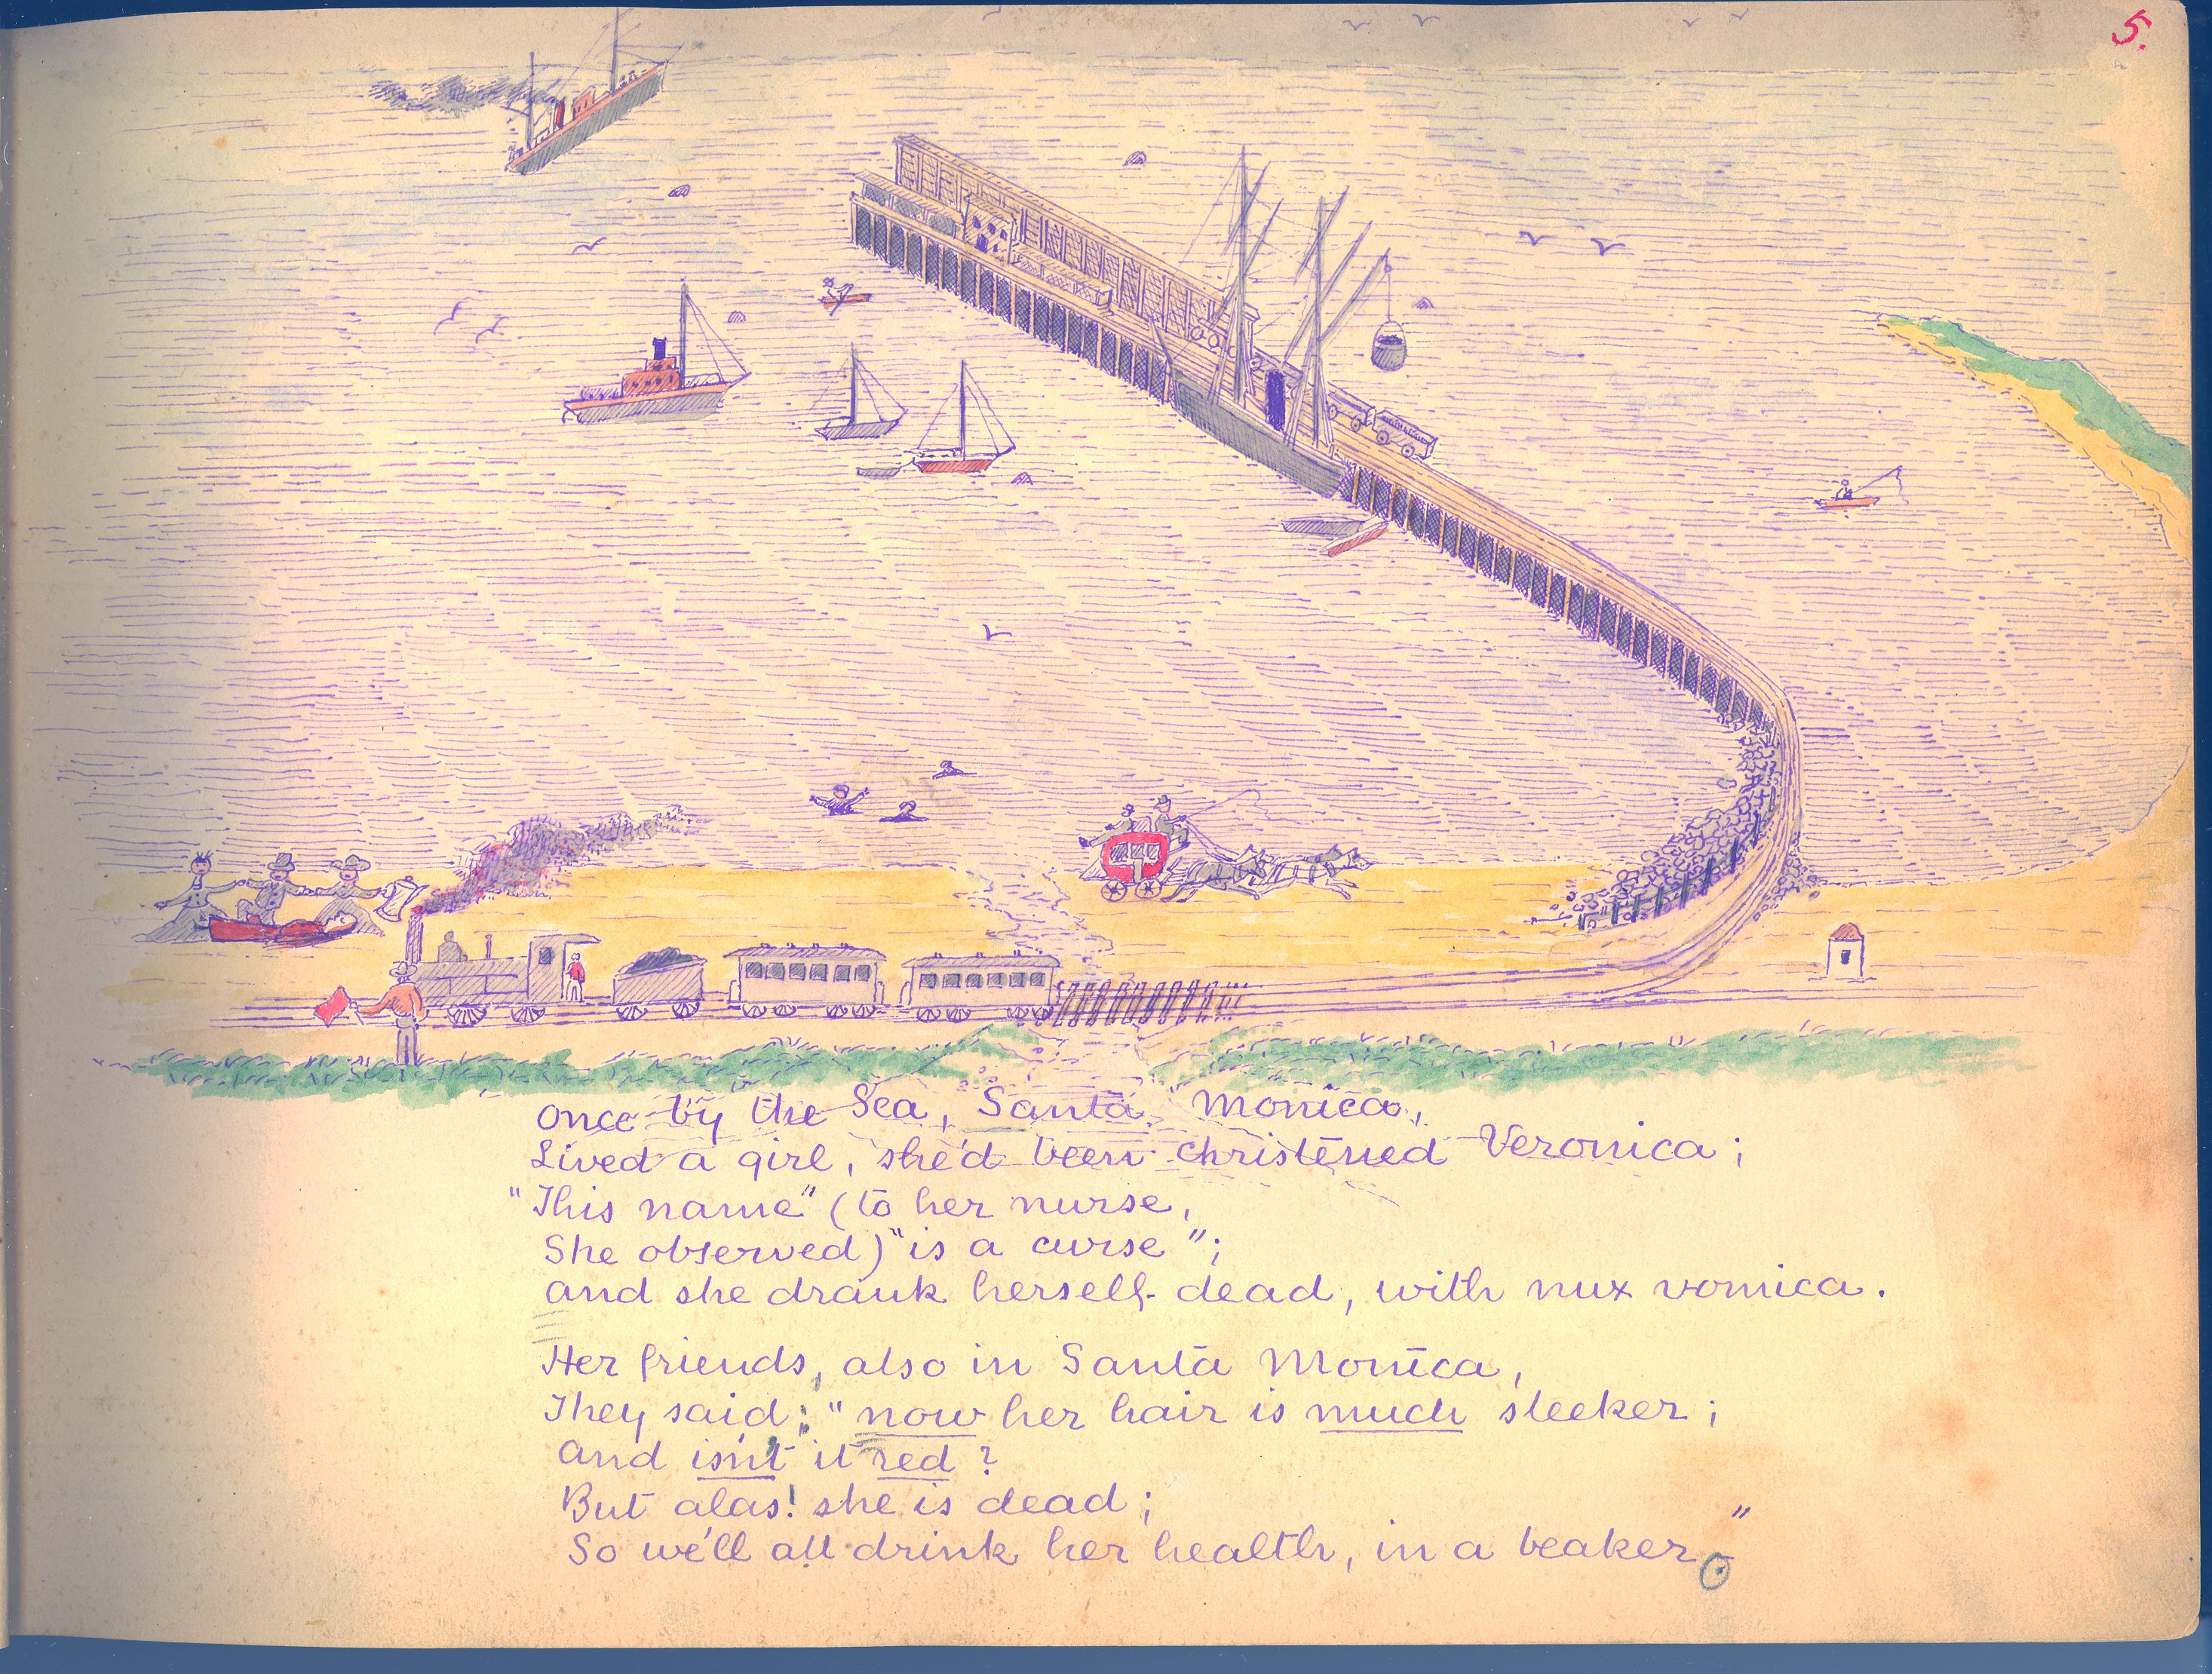 5.
Once by the Sea, Santa Monica,
Lived a girl, she'd been christened Veronica;
"This name" (to her nurse,
She observed) "is a curse";
And she drank herself dead, with nux vomica.
Her friends, also in Santa Monica,
They said: "now her hair is much sleeker;
And isn't it red?
But alas! she is dead;
So we'll all drink her health, in a beaker."